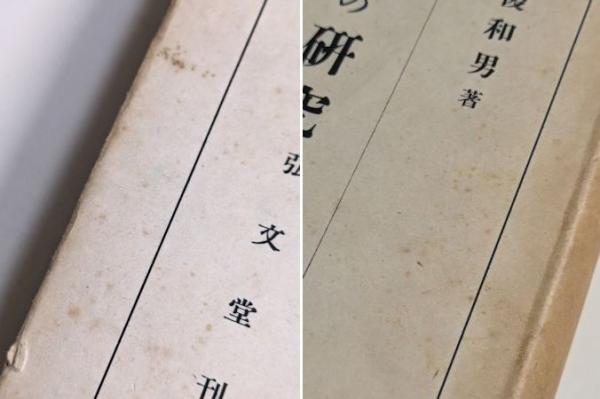 弘文堂刊
の研究
俊和男著